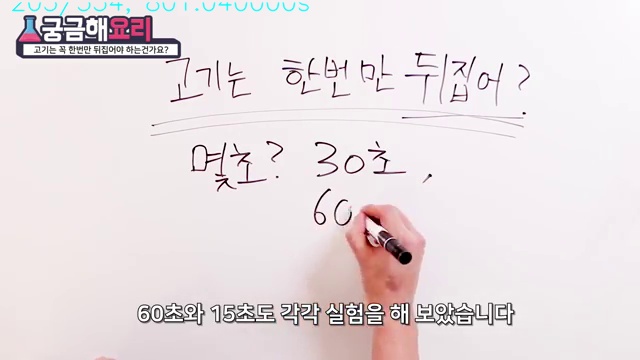 205/334, 601.040000s
궁금해요리
고기는 꼭 한번만 뒤집어야 하는건가요?
고기는 한번만 뒤집어?
몇초? 30초,
60
60초와 15초도 각각 실험을 해 보았습니다